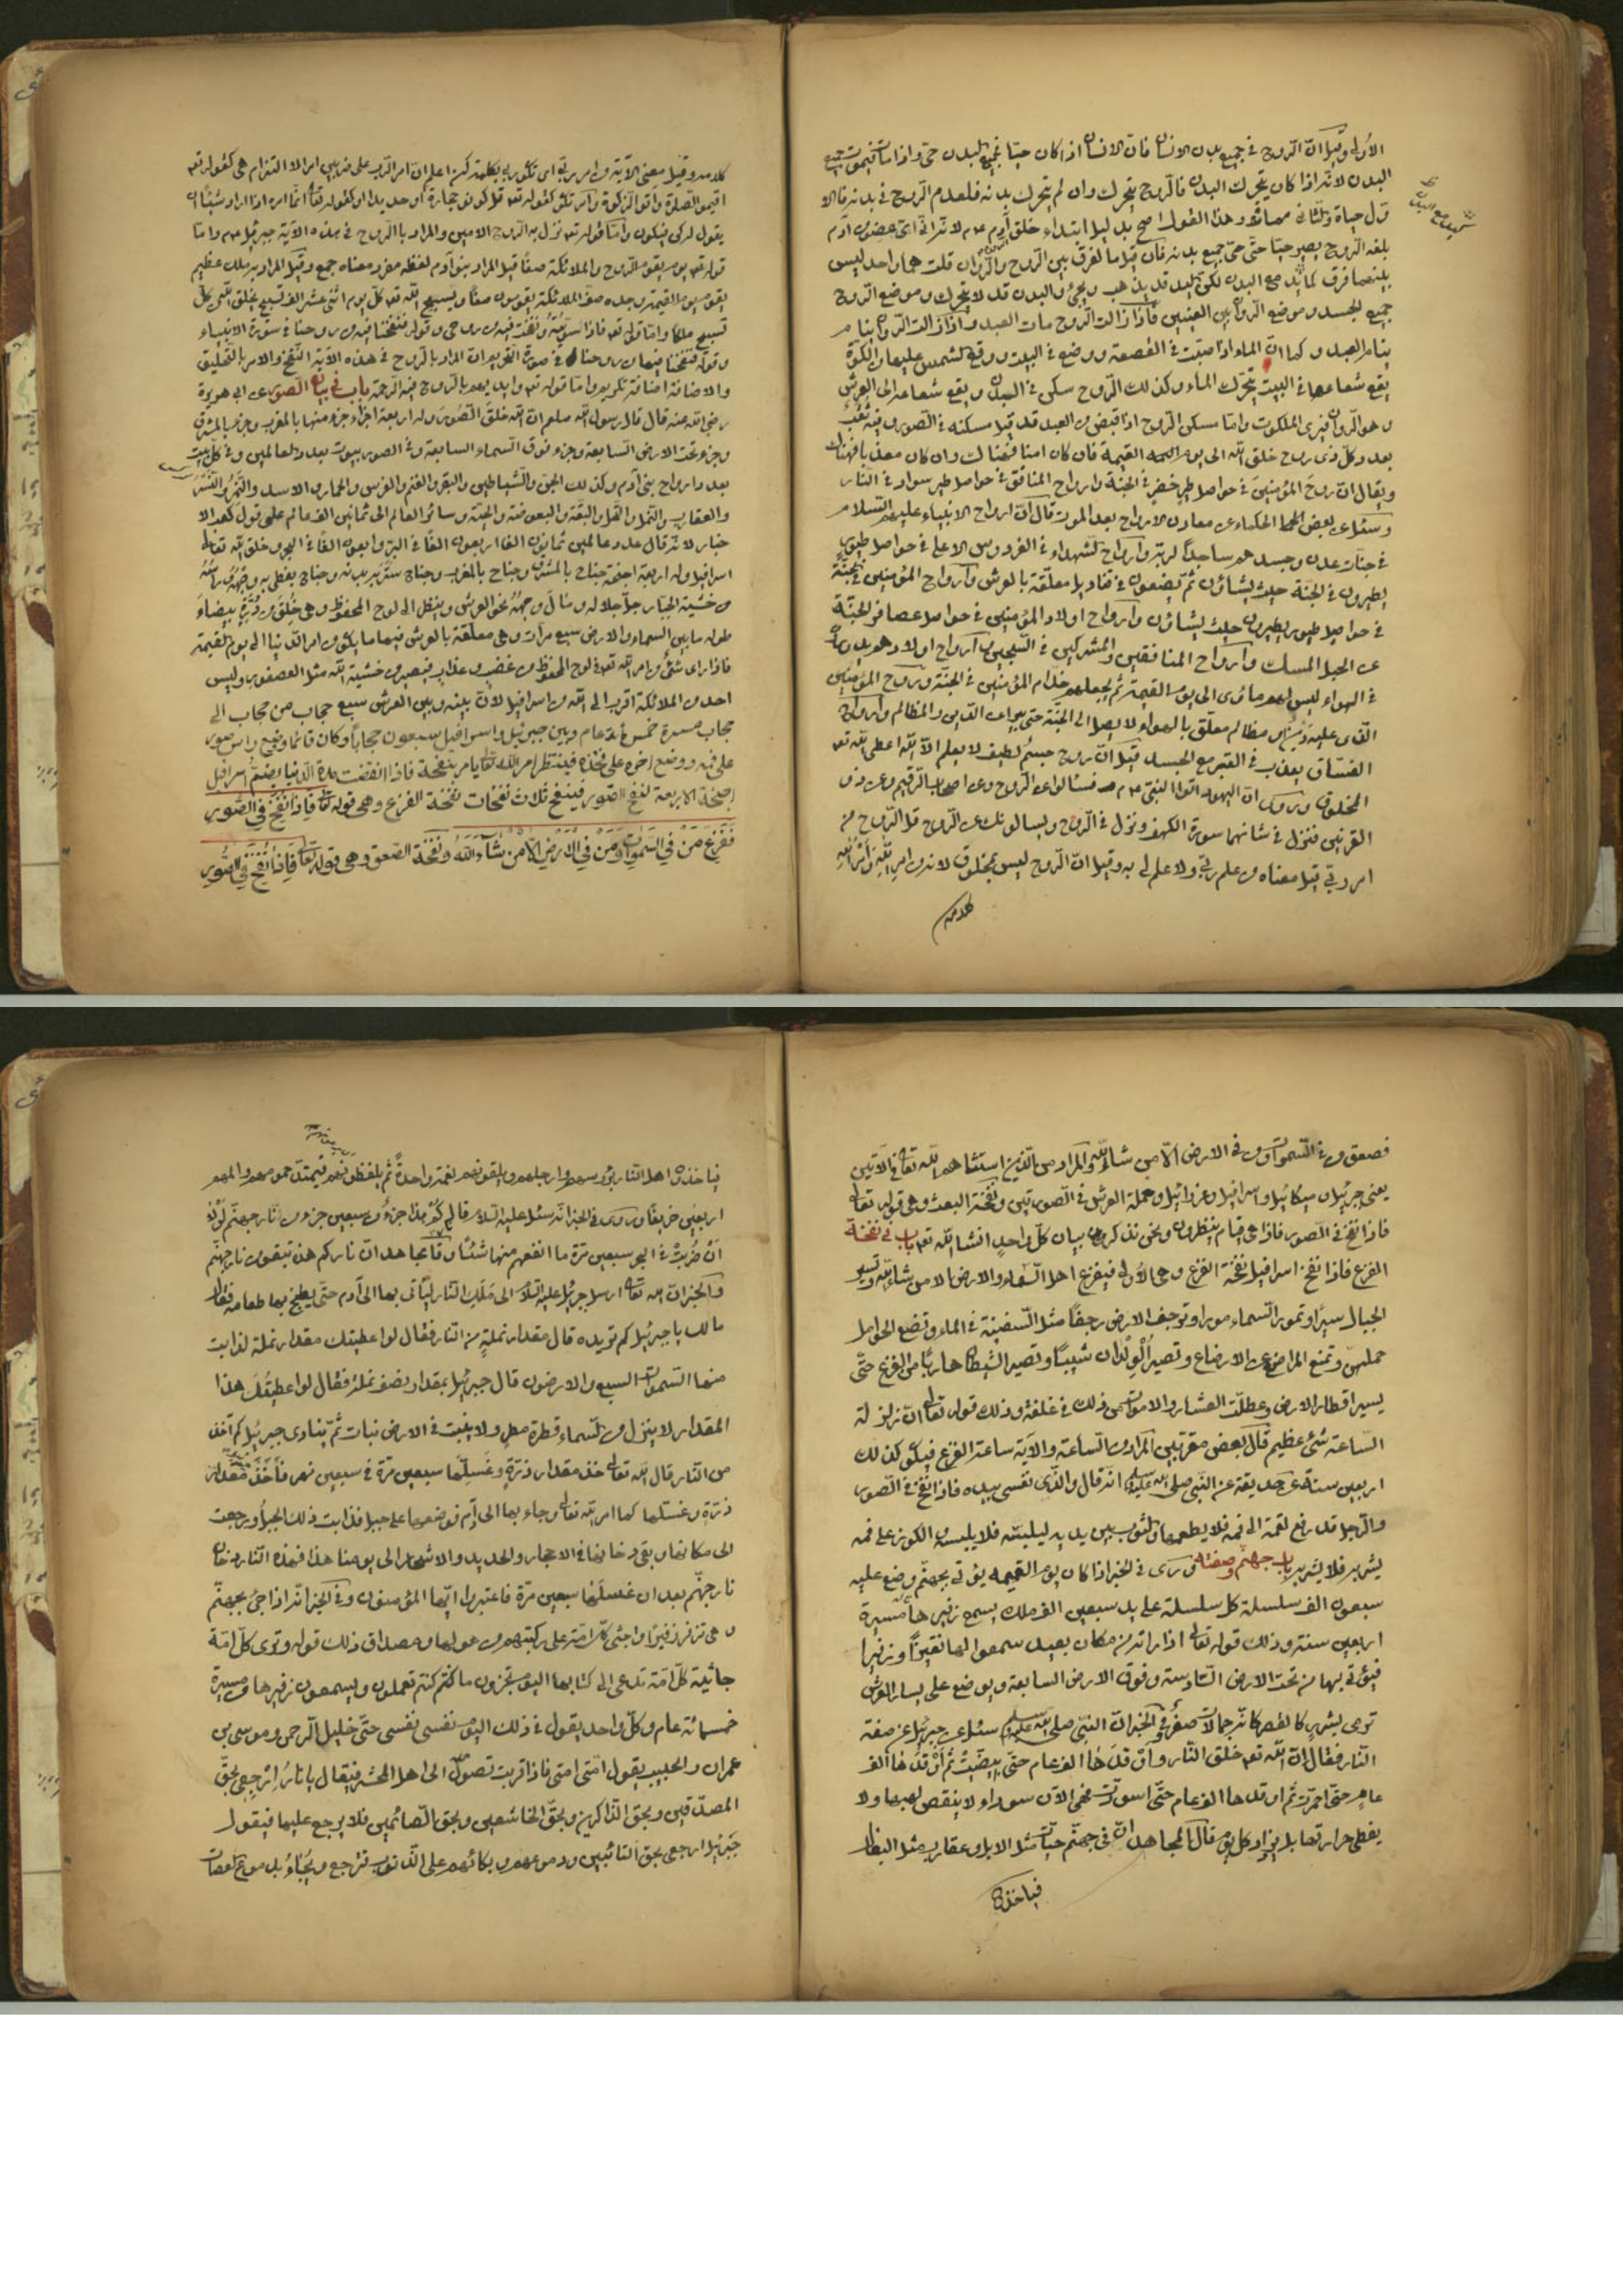 الأولى وقيل انّ الرّوح في جميع بدن الانسان فانّ الانسان اذا كان حيّا فجميع البدن حيّ واذا مات فيموت جميع
البدن لانّه اذا كان يتحرك البدن فالرّوح يتحرك وان لم يتحرك بدنه فلعدم الرّوح في بدنه
وهذا القول اصح بدليل ابتداء خلق آدم عم لانّه
بلغه الرّوح يصير حيّا حتّى حيّ جميع بدنه فان قيل ما الفرق بين الرّوح والرّوان قلت هما واحد ليس
بينهما فرق كما انّ اليد مع البدن لكن اليد قد يذهب ويجيء والبدن قد لا يتحرك وموضع الرّوح
جميع الجسد وموضع الرّوان بين العينين فاذا زالت الرّوح مات العبد واذا زالت الرّوان ينام
ينام العبد وكما انّ الماء اذا صبّت في القصعة ووضع في البيت ووقع الشمس عليها من الكوّة
يقع شعاعها في البيت يتحرّك الماء وكذلك الرّوح سكن في البدن ويقع شعاعه الى العرش
وهو الرّوان فيرى الملكوت وامّا مسكن الرّوح اذا قبض من العبد قد قيل مسكنه في الصّور وفيه ثقب
بعدد كلّ ذي روح خلق الله الى يوم القيمة فان كان
ويقال انّ روح المؤمنين في حواصل طير خضر في الجنّة وارواح المنافق في حواصل طير سواد في النّار
وسئل عن بعض الحكماء عن معادن الارواح بعد الموت قال انّ ارواح الانبياء عليهم السّلام
في جنّات عدن وجسدهم ساجدًا لربّه وارواح الشّهداء في الفردوس الاعلى في حواصل طيور
يطيرون في الجنّة حيث يشاؤن ثمّ يضعون في قناديل معلّقة بالعرش وارواح المؤمنين
في حواصل طيور يطيرون حيث يشاؤن وارواح اولاد المؤمنين في حواصل عصافير الجنّة
عن الجبل المسك وارواح المنافقين والمشركين في السّجّين وارواح اولادهم
في الهواء ليس لهم مأوى الى يوم القيمة ثمّ يجعلهم خدّام المؤمنين في الجنّة وروح المؤمنين
الّذي عليه دَين او مظالم معلّق بالهواء لا يصل الى الجنّة حتّى يبرأ من الدّين والمظالم وارواح
الفسّاق يعذّب في القبر مع الجسد قيل انّ روح جسمٌ لطيف لا يعلم الاّ الله
المخلوق وروي انّ اليهود اتوا النبيّ عم فسئالوا عن الرّوح وعن اصحاب الرّقيم وعن ذي
القرنين فنزل في شانهما سورة الكهف ونزل في الرّوح ويسالونك عن الرّوح قل الرّوح من
امر ربّي قيل معناه من علم ربّي ولا علم لي به وقيل انّ الرّوح ليس بمخلوق لانه من امر الله وامر الله
كلامه
كلامه وقيل معنى الآية من امر ربّي اي تكوين ربّي بكلمته كن اعلم انّ امر الرّب على ضربين امر الالتزام هي كقوله تعم
اقيموا الصّلوة وآتوا الزّكوة وامر تكن كقوله تعم قل كونوا حجارة أو حديدا او كقوله تعا انّما امره اذا اراد شيئا ان
يقول له كن فيكون وامّا قوله تعم نزل به الرّوح الامين والمراد باالرّوح في هذه الآية جبرئيل عم وامّا
قوله تعم يوم يقوم الرّوح والملائكة صفّا قيل المراد بنو آدم لفظه مفرد معناه جمع وقيل المراد به ملك عظيم
يقوم يوم القيمة وحده صفّا والملائكة يقومون صفّا ويسبّح الله تعم كلّ يوم اثنى عشر الف تسبيح يخلق الله من كلّ
تسبيح ملكا وامّا قوله تعم فاذا سوّيته ونفخت فيه من روحي وقوله فنفخنا فيه من روحنا في سورة الانبياء
وقوله فنفخنا فيها من روحنا في سورة التحريم انّ المراد بالرّوح في هذه الآية النّفخ والامر بالتّخليق
والاضافة اضافة تكريم وامّا قوله تعم وايّدهم بالرّوح فيه الرّحمة باب في بيان الصّور عن ابي هريرة
رضي الله عنه قال قال رسول الله صلعم انّ الله خلق الصّور وله اربعة اجزاء جزء منها بالمغرب وجزء بالمشرق
وجزء تحت الارض السّابعة وجزء فوق السّماء السابعة وفي الصور بيوت بعدد العالمين وفي كلّ بيت
بعدد ارواح بني آدم وكذلك الجنّ والشّياطين والبقر والغنم والفرس والحمار والاسد والنّمر
والعقارب والنّمل والقمل والبقّة والبعوضة والحيّة وسائر العالم الى ثمانين الف عالم على قول كعب الا
حبار لانّه قال عدد عالمين ثمانون الفا اربعون الفًا في البرّ واربعون الفًا في البحر وخلق الله تعا
اسرافيل وله اربعة اجنحة جناح بالمشرق وجناح بالمغرب وجناح ستر به بدنه وجناح يغطى به وجهه وراسه
من خشية الجبّار جلّ جلاله ومال وجهه نحو العرش وينظر الى لوح المحفوظ وهي خُلِق من دُرّة بيضاء
طوله ما بين السّماء والارض سبع مرات وهي معلّقة بالعرش فيها ما يكون من امر الدّنيا الى يوم القيمة
فاذا رأى شئ من امر الله تعم في لوح المحفوظ من غضب وعذاب فيصير من خشية الله مثل العصفور وليس
احد من الملائكة اقرب الى الله من اسرافيل لانّ بينه وبين العرش سبع حجاب من حجاب الى
حجاب مسيرة خمس مأة عام وبين جبرئيل واسرافيل سبعون حجاباً وكان قائما وضع رأس صور
على فمه ووضع اخره على فخذه فينتظر امر الله تعا يأمر بنفخة فاذا انقضت مدة الدنيا يضمّ اسرافيل
اجنحة الاربعة لنفخ الصّور فينفخ ثلاث نفخات نفخة الفزع وهي قوله تعا فَاِذَا نُفِخَ في الصّور
فَفَزِعَ مَنْ فِي السَّمٰوَاتِ وَمَنْ فِي الْاَرْضِ اِلَّا مَنْ شَآءَ اللّٰهُ ونفخة الصّعق وهي قوله تعا فَاِذَا نُفِخَ فِي الصُّورِ
فصعق من في السّموات ومن في الارض الاّ من شاء الله والمراد من الّذين استثناهم الله تعا في الآيتين
يعني جبرئيل وميكائيل واسرافيل وعزرائيل وحملة العرش في الصورتين ونفخة البعث وهي قوله تعا
فاذا نفخ في الصور فاذا هي قيام ينظرون ونحن نذكر بيان كلّ واحدٍ انشا الله تعم باب في نفخة
الفزع فاذا نفخ اسرافيل نفخة الفزع وهي الأولى فيفزع اهل السّماء والارض الا من شاء الله وتسير
الجبال سيرًا وتمور السّماء مورا وترجف الارض رجفًا مثل السّفينة في الماء وتضع الحوامل
حملهنّ وتمنع المراضع عن الارضاع وتصير الْوِلْدان شيبًا وتصير الشيطان هاربًا من الفزع حتّى
يسير اقطار الارض وعطّلت العشار والاموات من ذلك في غفلة وذلك قوله تعا انّ زلزلة
السّاعة شئ عظيم قال بعض مقربين المراد من السّاعة والآية ساعة الفزع فيكون كذلك
اربعين سنة عن حديقة عن النّبي صلى الله عليه انّه قال والّذي نفسي بيده فاذا نفخ في الصّور
والرّجل قد رفع لقمة الى فمه فلا يطعمها والثوب بين يديه ليلبسه فلا يلبسه الكوز على فمه
يشربه فلا يشربه باب جهنّم وصفته روى في الخبر اذا كان يوم القيمة يؤتى بجهنّم وضع عليه
سبعون الف سلسلة كل سلسلة على يد سبعين الف ملك يسمع زفيرها مسيرة
اربعين سنة وذلك قوله تعا اذا راته من مكان بعيد سمعوا لها تغيّظًا وزفيرا
فيؤتى بها من تحت الارض السّادسة وفوق الارض السابعة ويوضع على يسار العرش
ترمى بشررٍ كالقصر كانّه جمالات صفر وفي الخبر انّ النّبيّ صلى الله عليه سئل عن جبرئيل عن صفة
النّار فقال انّ الله تعم خلق النّار واوقد لها الف عام حتّى بيضّت ثم اوقد لها الف
عام حتّى احمرّت ثمّ اوقد لها الف عام حتّى اسودّت فهي الآن سوداء لا ينقص لهبها ولا
يغطى حرارتها بل يزاد كلّ يوم قال المجاهد انّ في جهنّم حيّات مثل الابل وعقارب مثل البغال
فياخذها
اربعين خريفًا وروى في الخبر انّه سئل عليه السّلام قال
انْ ضُرِبَتْ في البحر سبعين مرّة ما انفعهم منها شئًا وقال مجاهد انّ ناركم هذه تبعّون نار جهنّم
وفي الخبر انّ الله تعا ارسل جبرئيل عليه السّلام الى مَلَكِ النّار ليأتى بها الى آدم حتّى يطبخ بها طعامه فقال
مالك يا جبرئيل كم تريده قال مقدار نملةٍ من النّار فقال لو اعطيتك مقدار نملة لذابت
منها السّموات السبع والارضون قال جبرئيل بمقدار نصف نملة فقال لو اعطيتُكَ هذا
المقدار لا ينزل من السّماء قطرة مطرٍ ولا ينبت في الارض نبات ثمّ ينادى جبرئيل كم آخذ
من النّار قال الله تعا خذ مقدار ذرّةٍ وغَسِّلْها سبعين مرّة في سبعين نهر فأخَذَ مقدار
ذرّة وغسّلها كما امر الله تعا وجاء بها الى آدم فوضعها على جبل فذابت ذلك الجبل ورجعت
الى مكانها وبقى دخانها في الاحجار والحديد والاشجار الى يومنا هذا فهذه النّار من دخان
نار جهنّم بعد ان غسلها سبعين مرّة فاعتبروا ايّها المؤمنون وفي الخبر انّه اذا جئ بجهنّم
وهي تزفر زفيرًا واجثى كلّ امّة على ركبتهم من هولها ومصداق ذلك قوله وترى كلّ امّة
جاثية كلّ امّة تدعى الى كتابها اليوم تجزون ما كنتم تعملون ويسمعون زفيرها من مسيرة
خمسمائة عام وكلّ واحد يقول في ذلك اليوم نفسى نفسى حتّى خليل الرّحمن وموسى بن
عمران والحبيب يقول امّتى امتى فاذا قربت تصول الى اهل المحشر فيقال يا نارُ اِرْجِعِى بحقّ
المصدّقين وبحقّ الذّاكرين وبحقّ الخاشعين وبحق الصّائمين فلا يرجع عليها فيقول
جبرئيل ارجعى بحقّ التّائبين ودموعهم وبكائهم على الذّنوب فترجع ويُجَاءُ